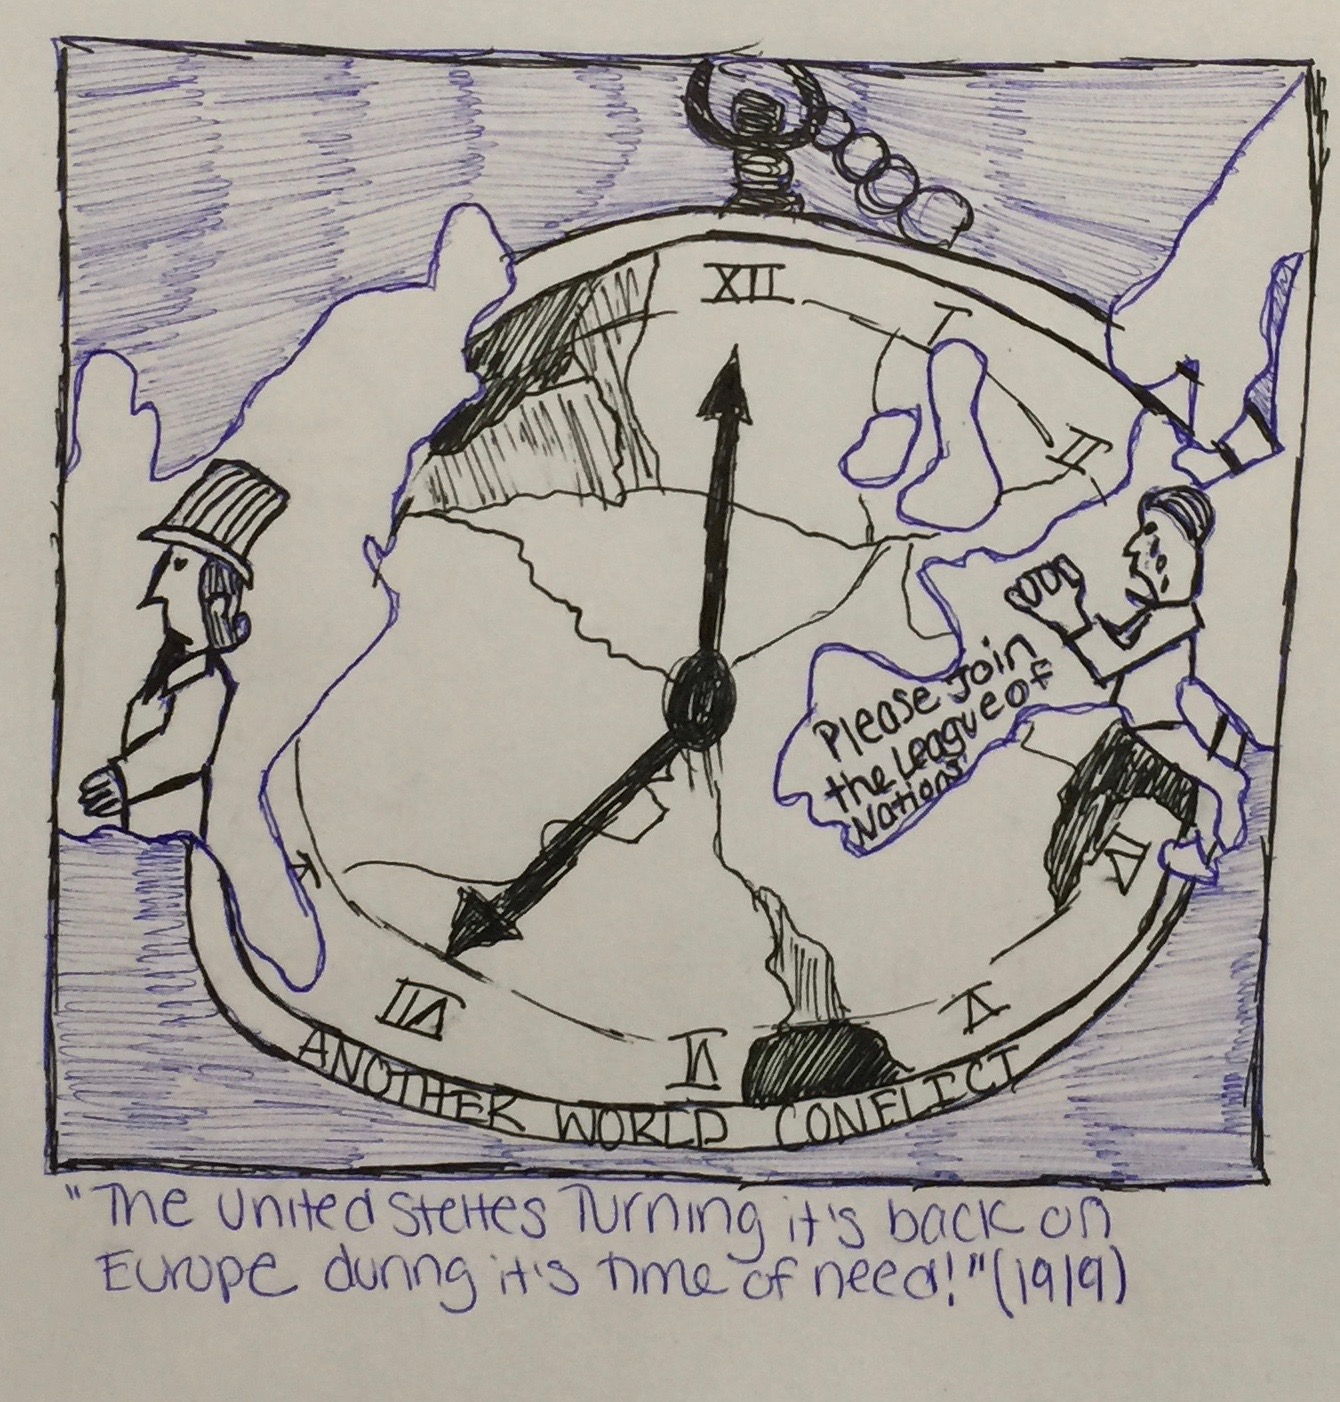 XII
I
II
Please Join
the League of
Nations
IV
V
VI
VII
ANOTHER WORLD CONFLICT
"The United States Turning it's back on
Europe during it's time of need!" (1919)